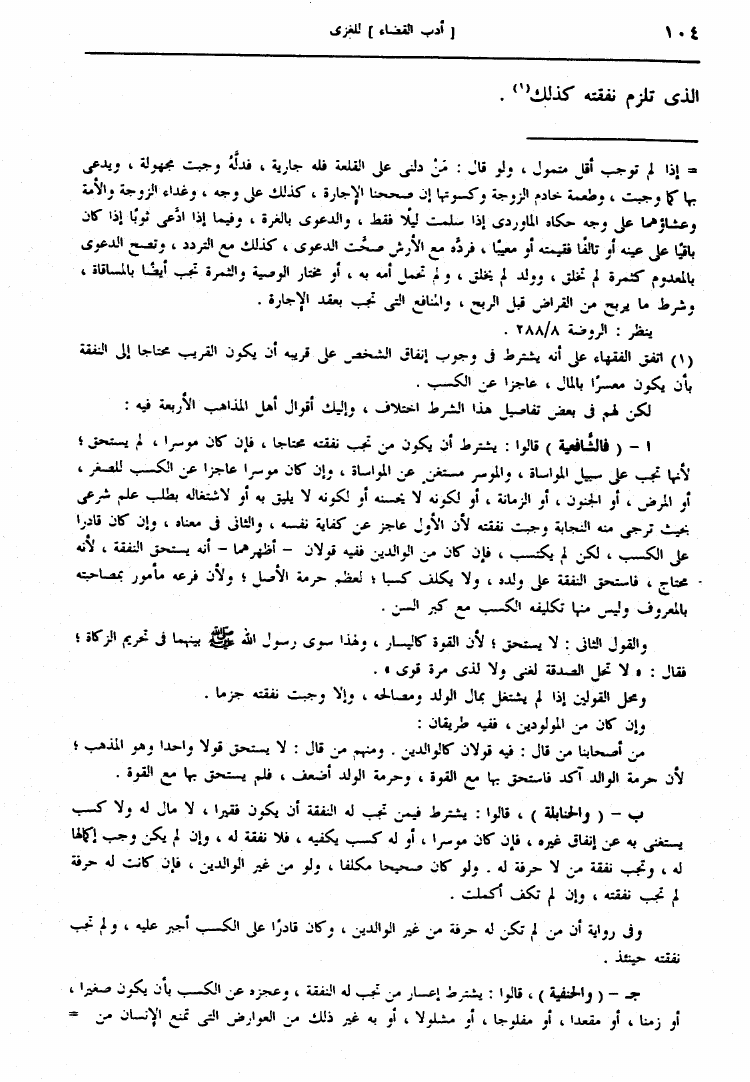 ١٠٤
[ أدب القضاء ] للغزى
الذى تلزم نفقته كذلك(١) .
= إذا لم توجب أقل متمول ، ولو قال : مَنْ دلنى على القلعة فله جارية ، فدلَّهُ وجبت مجهولة ، ويدعى
بها كما وجبت ، وطعمة خادم الزوجة وكسوتها إن صححنا الإجارة ، كذلك على وجه ، وغداء الزوجة والأمة
وعشاؤهما على وجه حكاه الماوردى إذا سلمت ليلًا فقط ، والدعوى بالغرة ، وفيما إذا ادَّعى ثوبًا إذا كان
باقيًا على عينه أو تالفًا فقيمته أو معيبًا ، فردَّه مع الأرش صحَّت الدعوى ، كذلك مع التردد ، وتصح الدعوى
بالمعدوم كثمرة لم تخلق ، وولد لم يخلق ، ولم تحمل أمه به ، أو مختار الوصية والثمرة تجب أيضًا بالمساقاة ،
وشرط ما يربح من القراض قبل الربح ، والمنافع التى تجب بعقد الإجارة .
ينظر : الروضة ٢٨٨/٨ .
(١) اتفق الفقهاء على أنه يشترط فى وجوب إنفاق الشخص على قريبه أن يكون القريب محتاجا إلى النفقة
بأن يكون معسرًا بالمال ، عاجزا عن الكسب .
لكن لهم فى بعض تفاصيل هذا الشرط اختلاف ، وإليك أقوال أهل المذاهب الأربعة فيه :
ا – ( فالشَّافعية ) قالوا : يشترط أن يكون من تجب نفقته محتاجا ، فإن كان موسرا ، لم يستحق ؛
لأنها تجب على سبيل المواساة ، والموسر مستغن عن المواساة ، وإن كان موسرا عاجزا عن الكسب للصغر ،
أو المرض ، أو الجنون ، أو الزمانة ، أو لكونه لا يحسنه أو لكونه لا يليق به أو لاشتغاله بطلب علم شرعى
بحيث ترجى منه النجابة وجبت نفقته لأن الأول عاجز عن كفاية نفسه ، والثانى فى معناه ، وإن كان قادرا
على الكسب ، لكن لم يكتسب ، فإن كان من الوالدين ففيه قولان – أظهرهما – أنه يستحق النفقة ، لأنه
محتاج ، فاستحق النفقة على ولده ، ولا يكلف كسبا ؛ لعظم حرمة الأصل ؛ ولأن فرعه مأمور بمصاحبته
بالمعروف وليس منها تكليفه الكسب مع كبر السن .
والقول الثانى : لا يستحق ؛ لأن القوة كاليسار ، ولهذا سوى رسول الله ﷺ بينهما فى تحريم الزكاة ؛
فقال : « لا تحل الصدقة لغنى ولا لذى مرة قوى » .
ومحل القولين إذا لم يشتغل بمال الولد ومصالحه ، وإلا وجبت نفقته جزما .
وإن كان من المولودين ، ففيه طريقان :
من أصحابنا من قال : فيه قولان كالوالدين . ومنهم من قال : لا يستحق قولا واحدا وهو المذهب ؛
لأن حرمة الوالد آكد فاستحق بها مع القوة ، وحرمة الولد أضعف ، فلم يستحق بها مع القوة .
ب – ( والحنابلة ) ، قالوا : يشترط فيمن تجب له النفقة أن يكون فقيرا ، لا مال له ولا كسب
يستغنى به عن إنفاق غيره ، فإن كان موسرا ، أو له كسب يكفيه ، فلا نفقة له ، وإن لم يكن وجب إكمالها
له ، وتجب نفقة من لا حرفة له . ولو كان صحيحا مكلفا ، ولو من غير الوالدين ، فإن كانت له حرفة
لم تجب نفقته ، وإن لم تكف أكملت .
وفى رواية أن من لم تكن له حرفة من غير الوالدين ، وكان قادرًا على الكسب أجبر عليه ، ولم تجب
نفقته حينئذ .
جـ – ( والحنفية ) ، قالوا : يشترط إعسار من تجب له النفقة ، وعجزه عن الكسب بأن يكون صغيرا ،
أو زمنا ، أو مقعدا ، أو مفلوجا ، أو مشلولا ، أو به غير ذلك من العوارض التى تمنع الإنسان من =